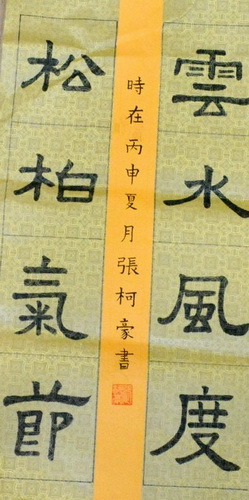 雲水風度
松柏氣節
時在丙申夏月張柯豪書